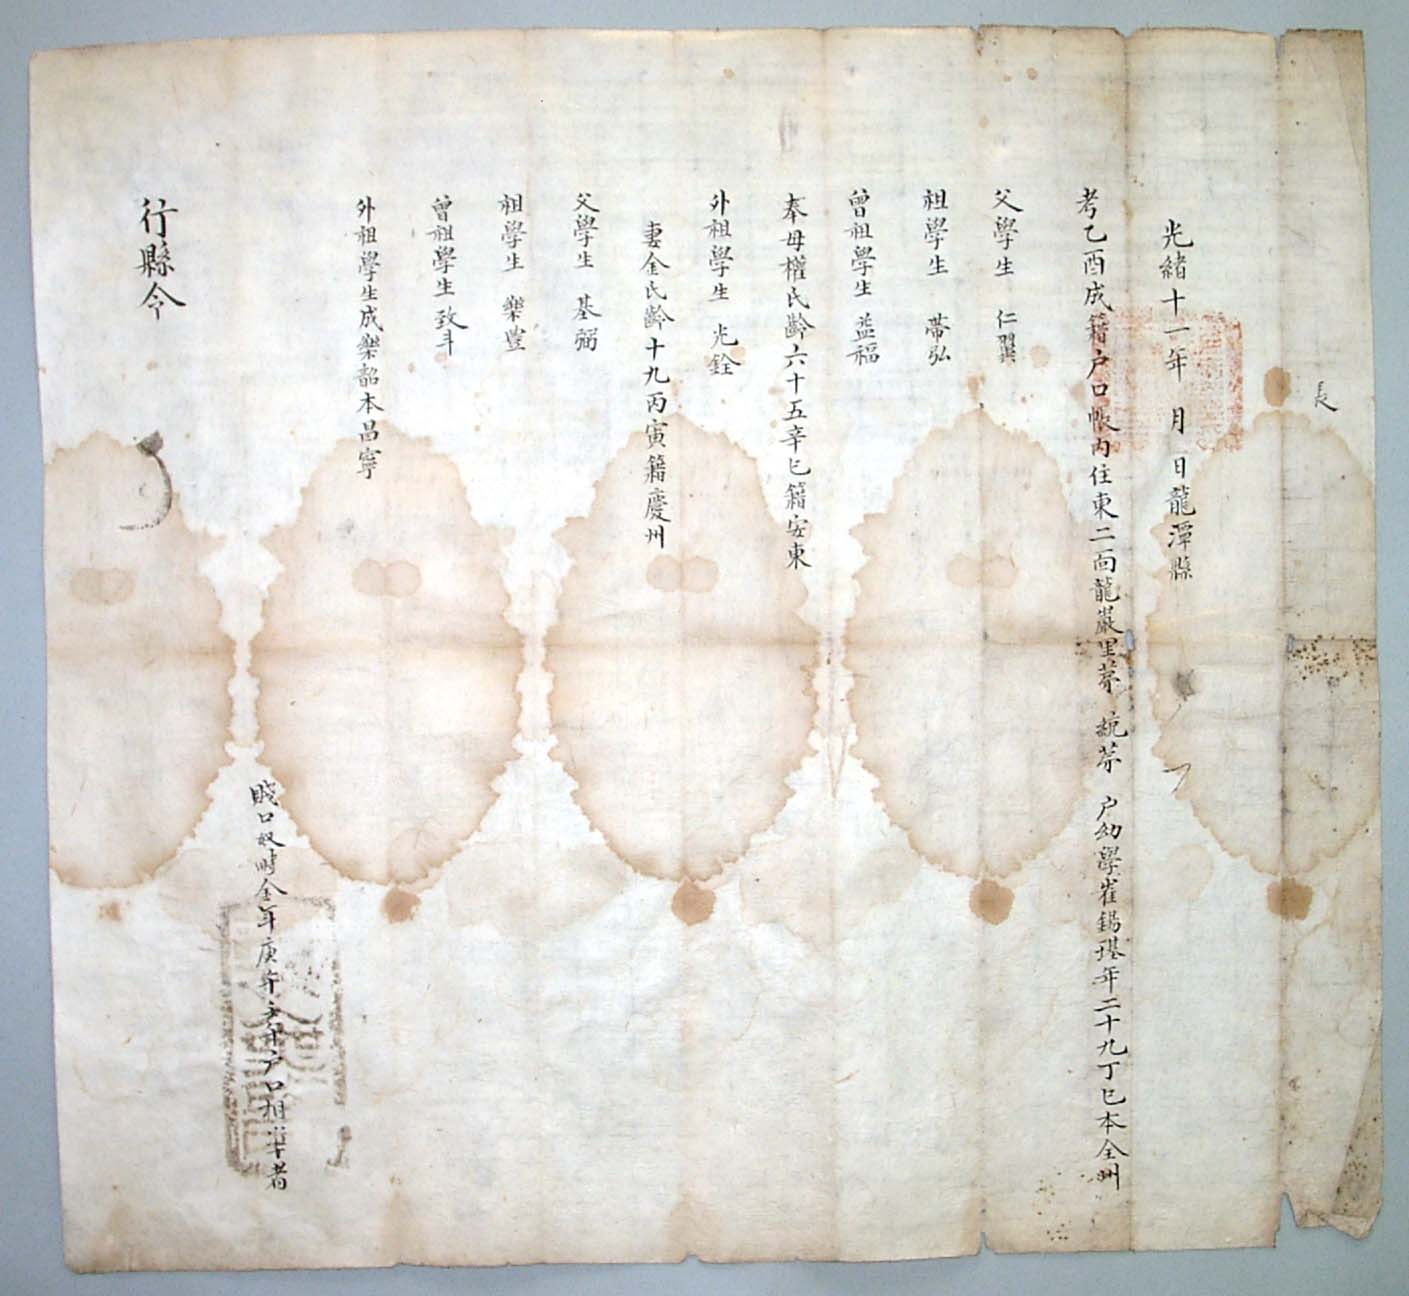 長
光緖十一年 月 日龍潭縣
考乙酉成籍戶口帳內住東二面龍巖里苐 統苐 戶幼學崔錫堪年二十九丁巳本全州
父學生 仁翼
祖學生 蒂弘
曾祖學生 益福
奉母權氏齡六十五辛巳籍安東
外祖學生 光銓
妻金氏齡十九丙寅籍慶州
父學生 基弼
祖學生 樂豊
曾祖學生 致斗
外祖學生成樂韶本昌寧
賤口奴時金年庚 戶口相準者
行縣令